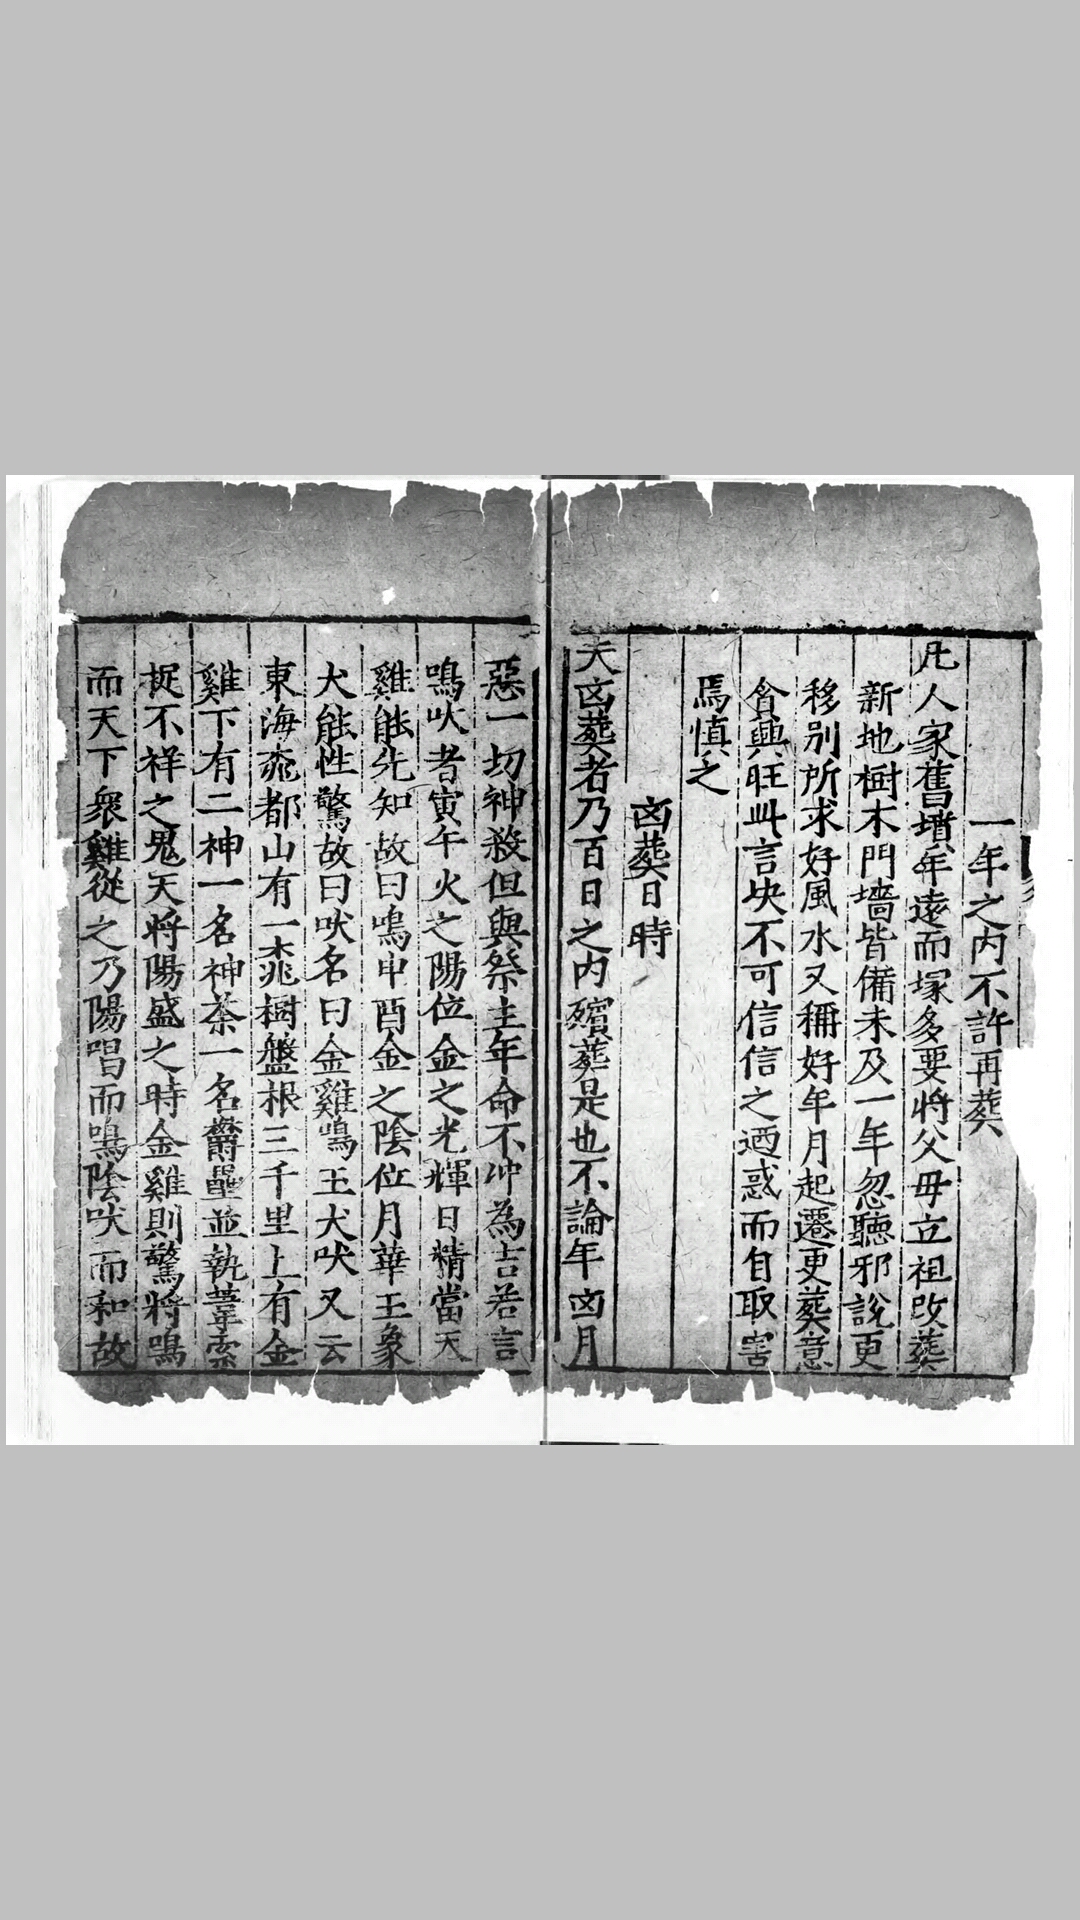 一年之内不許再葬
凡人家舊墳年遠而塚多要將父母立祖改葬
新地樹木門墻皆備未及一年忽聽邪說更
移別所求好風水又稱好年月起遷更葬意
貪興旺此言決不可信信之迺惑而自取害
焉慎之
凶葬日時
夫凶葬者乃百日之内殯葬是也不論年凶月
惡一切神殺但與祭主年命不冲為吉若言
鳴吠者寅午火之陽位金之光輝日精當天
雞能先知故曰鳴申酉金之陰位月華玉象
犬能性驚故曰吠名曰金雞鳴玉犬吠又云
東海度都山有一桃樹盤根三千里上有金
雞下有二神一名神荼一名欝壘並執葦索
捉不祥之鬼天將陽盛之時金雞則驚將鳴
而天下衆雞從之乃陽唱而鳴陰吠而和故